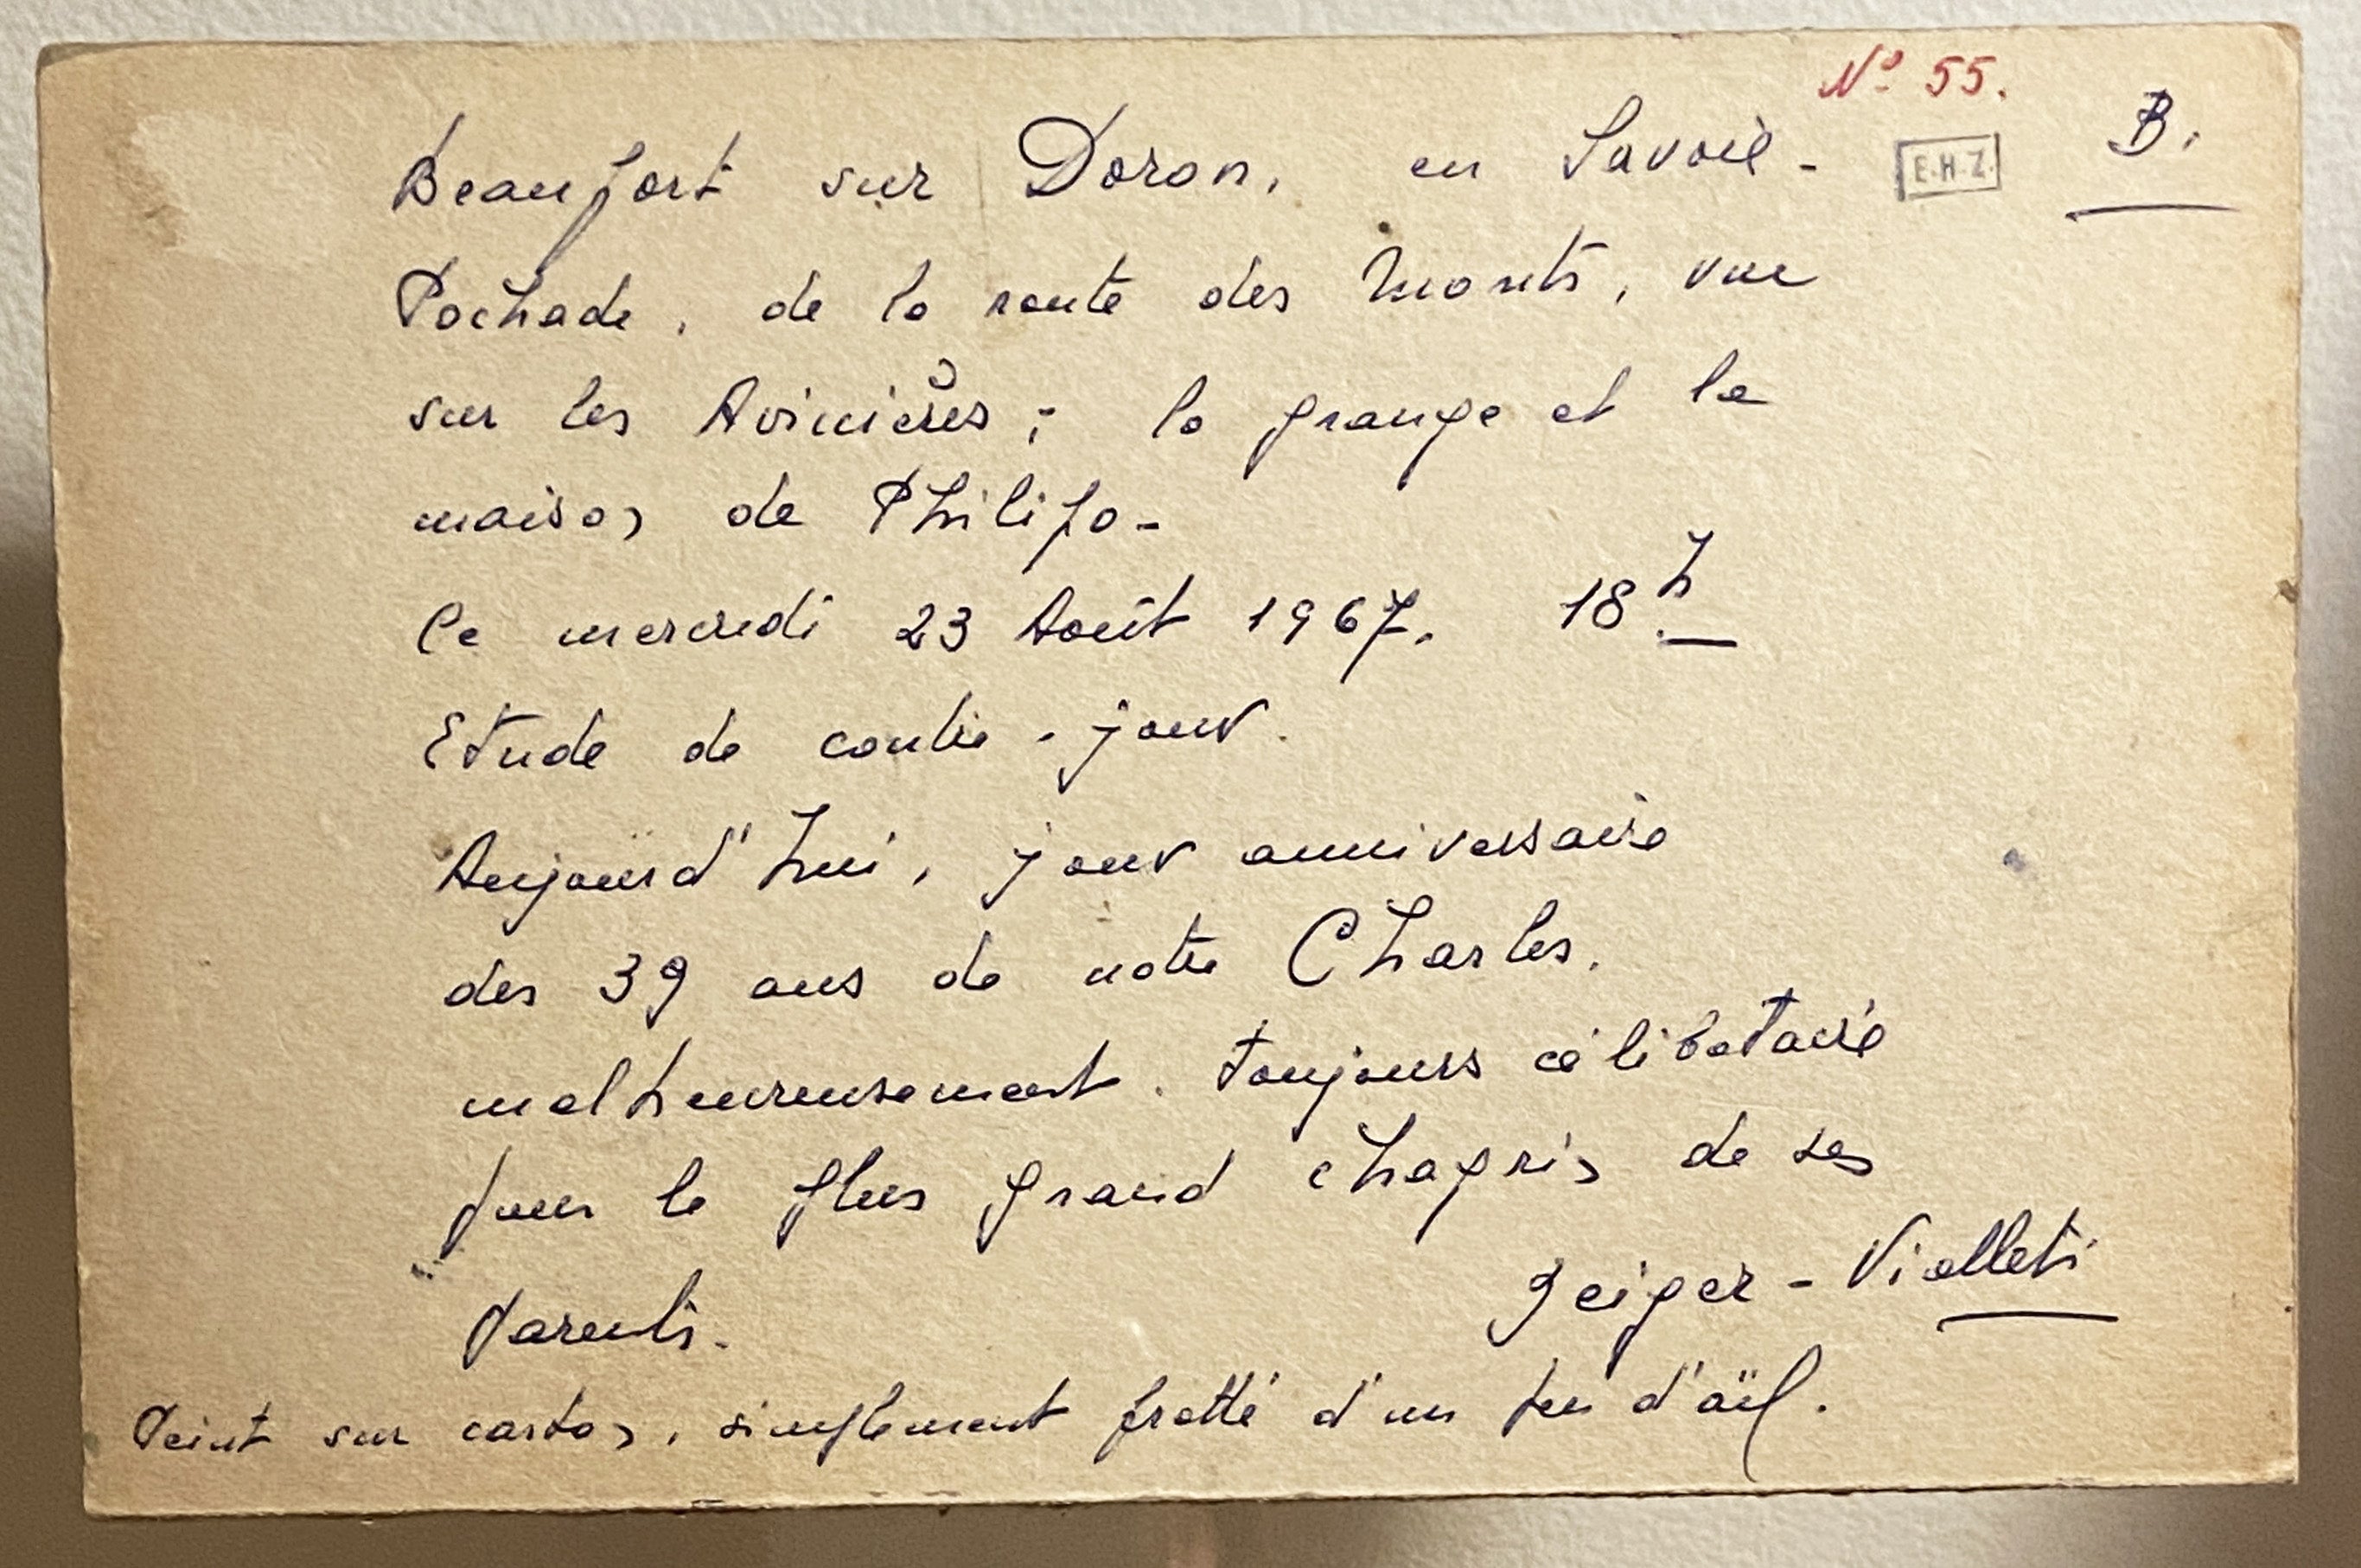 N° 55.
B.
E.H.Z.
Beaufort sur Doron, en Savoie -
Pochade, de la route des Monts, vue
sur les Avinières ; la grange et la
maison de Philipo -
Ce mercredi 23 Août 1967. 18h
Etude de contre-jour.
Aujourd'hui, jour anniversaire
des 39 ans de notre Charles,
malheureusement toujours célibataire
pour le plus grand chagrin de ses
parents.
Geiger - Viallet
Peint sur carton, simplement frotté d'un peu d'aïl.